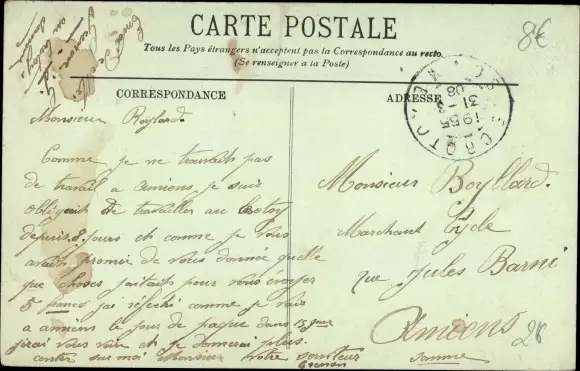 CARTE POSTALE
Tous les Pays étrangers n'acceptent pas la Correspondance au recto
(Se renseigner a la Poste)
8€
CORRESPONDANCE
ADRESSE
LE CROTOY
SOMME
1955
31-3
08
Monsieur Boyllard.
Comme je ne trouvait pas
de travail a amiens je suis
obligait de travailler au Crotoy
depuis 8 jours et comme je vous
avait promie de vous donnée quelle
que choses j'aitait pour vous
5 francs j'ai comme je vais
a amiens le jour de paque dans 15 jour
j'irai vous voir et je donnerai plus.
conter sur moi Monsieur Votre serviteur
Monsieur Boyllard.
Marchant Cycle
rue Jules Barni
Amiens
Somme
28